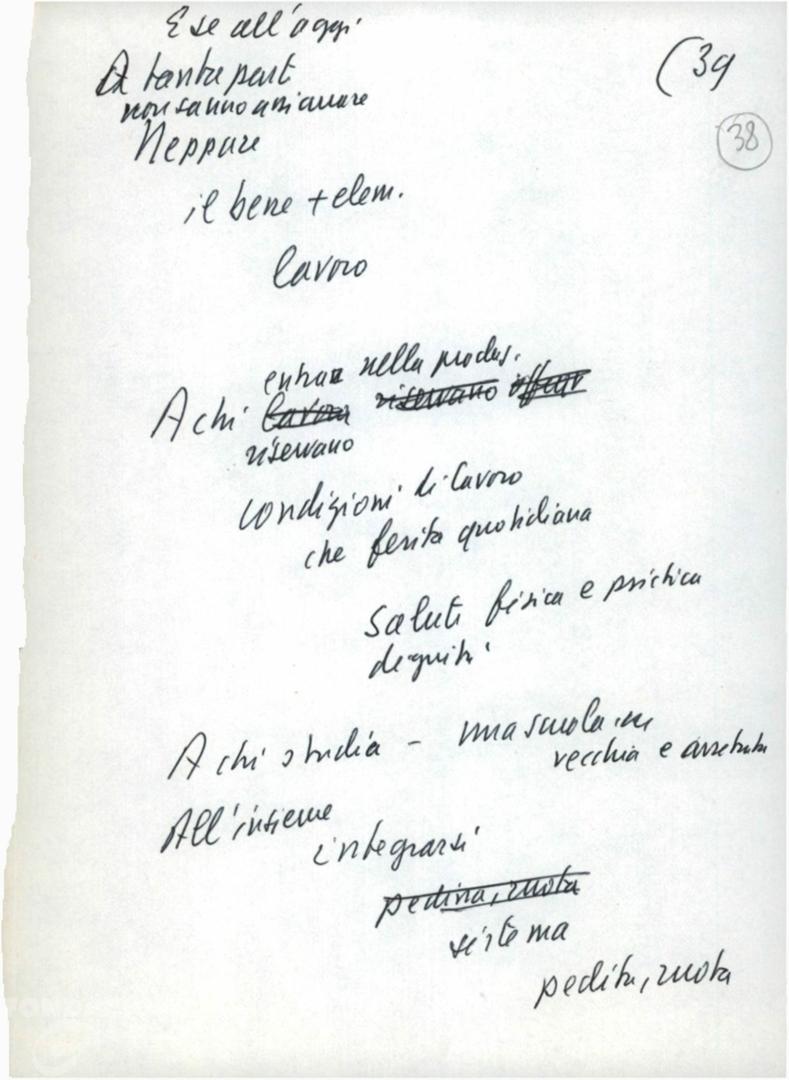 E se all'oggi
(39
A tanta part
non sanno assicurare
38
Neppure
il bene + elem.
lavoro
entra nella produz.
A chi lavora riservano offrir
riservano
condizioni di lavoro
che ferita quotidiana
Salute fisica e psichica
dignità
A chi studia - una scuola
vecchia e arretrata
All'insieme
integrarsi
pedina, ruota
sistema
pedina, ruota